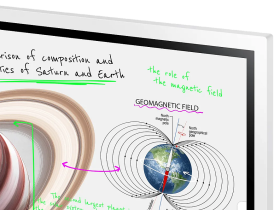 rison of composition and
tics of Saturn and Earth
the role of
the magnetic field
GEOMAGNETIC FIELD
North
magnetic
pole
North
geographical
pole
The second largest planet